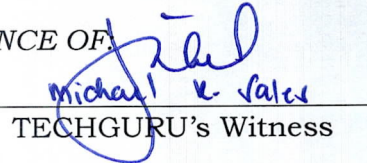 NCE OF:
Michael K. Sales
TECHGURU's Witness